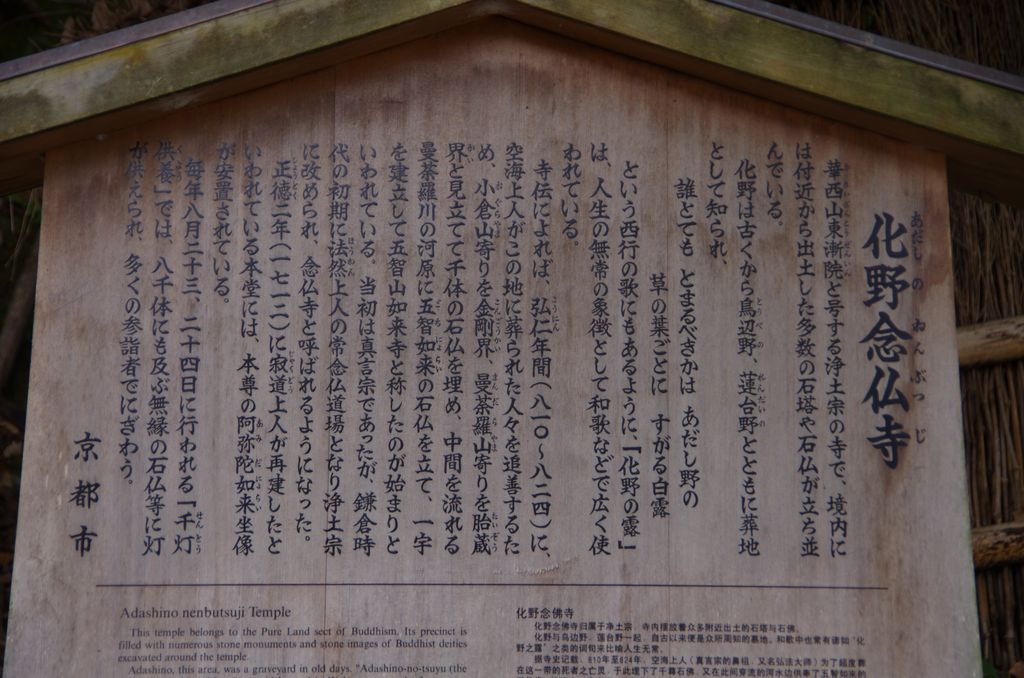 化野念仏寺
あだしの ねんぶつ じ
華西山東漸院と号する浄土宗の寺で、境内に
は付近から出土した多数の石塔や石仏が立ち並
んでいる。
化野は古くから鳥辺野、蓮台野とともに葬地
として知られ、
誰とても とまるべきかは あだし野の
草の葉ごとに すがる白露
という西行の歌にもあるように、「化野の露」
は、人生の無常の象徴として和歌などで広く使
われている。
寺伝によれば、弘仁年間(八一〇〜八二四)に、
空海上人がこの地に葬られた人々を追善するた
め、小倉山寄りを金剛界、曼荼羅山寄りを胎蔵
界と見立てて千体の石仏を埋め、中間を流れる
曼荼羅川の河原に五智如来の石仏を立て、一宇
を建立して五智山如来寺と称したのが始まりと
いわれている。当初は真言宗であったが、鎌倉時
代の初期に法然上人の常念仏道場となり浄土宗
に改められ、念仏寺と呼ばれるようになった。
正徳二年(一七一二)に寂道上人が再建したと
いわれている本堂には、本尊の阿弥陀如来坐像
が安置されている。
毎年八月二十三、二十四日に行われる「千灯
供養」では、八千体にも及ぶ無縁の石仏等に灯
が供えられ、多くの参詣者でにぎわう。
京都市
Adashino nenbutsuji Temple
This temple belongs to the Pure Land sect of Buddhism. Its precinct is
filled with numerous stone monuments and stone images of Buddhist deities
excavated around the temple.
Adashino, this area, was a graveyard in old days. "Adashino-no-tsuyu (the
化野念佛寺
化野念佛寺归属于净土宗，寺内摆放着众多附近出土的石塔与石佛。
化野与鸟边野、莲台野一起，自古以来便是众所周知的墓地，和歌中也常有诸如"化
野之露"之类的词句来比喻人生无常。
据寺史记载，810年至824年，空海上人（真言宗的鼻祖，又名弘法大师）为了超度葬
在这一带的死者之亡灵，于此埋下了千尊石佛，又在此间穿流的河水边供奉了五智如来的